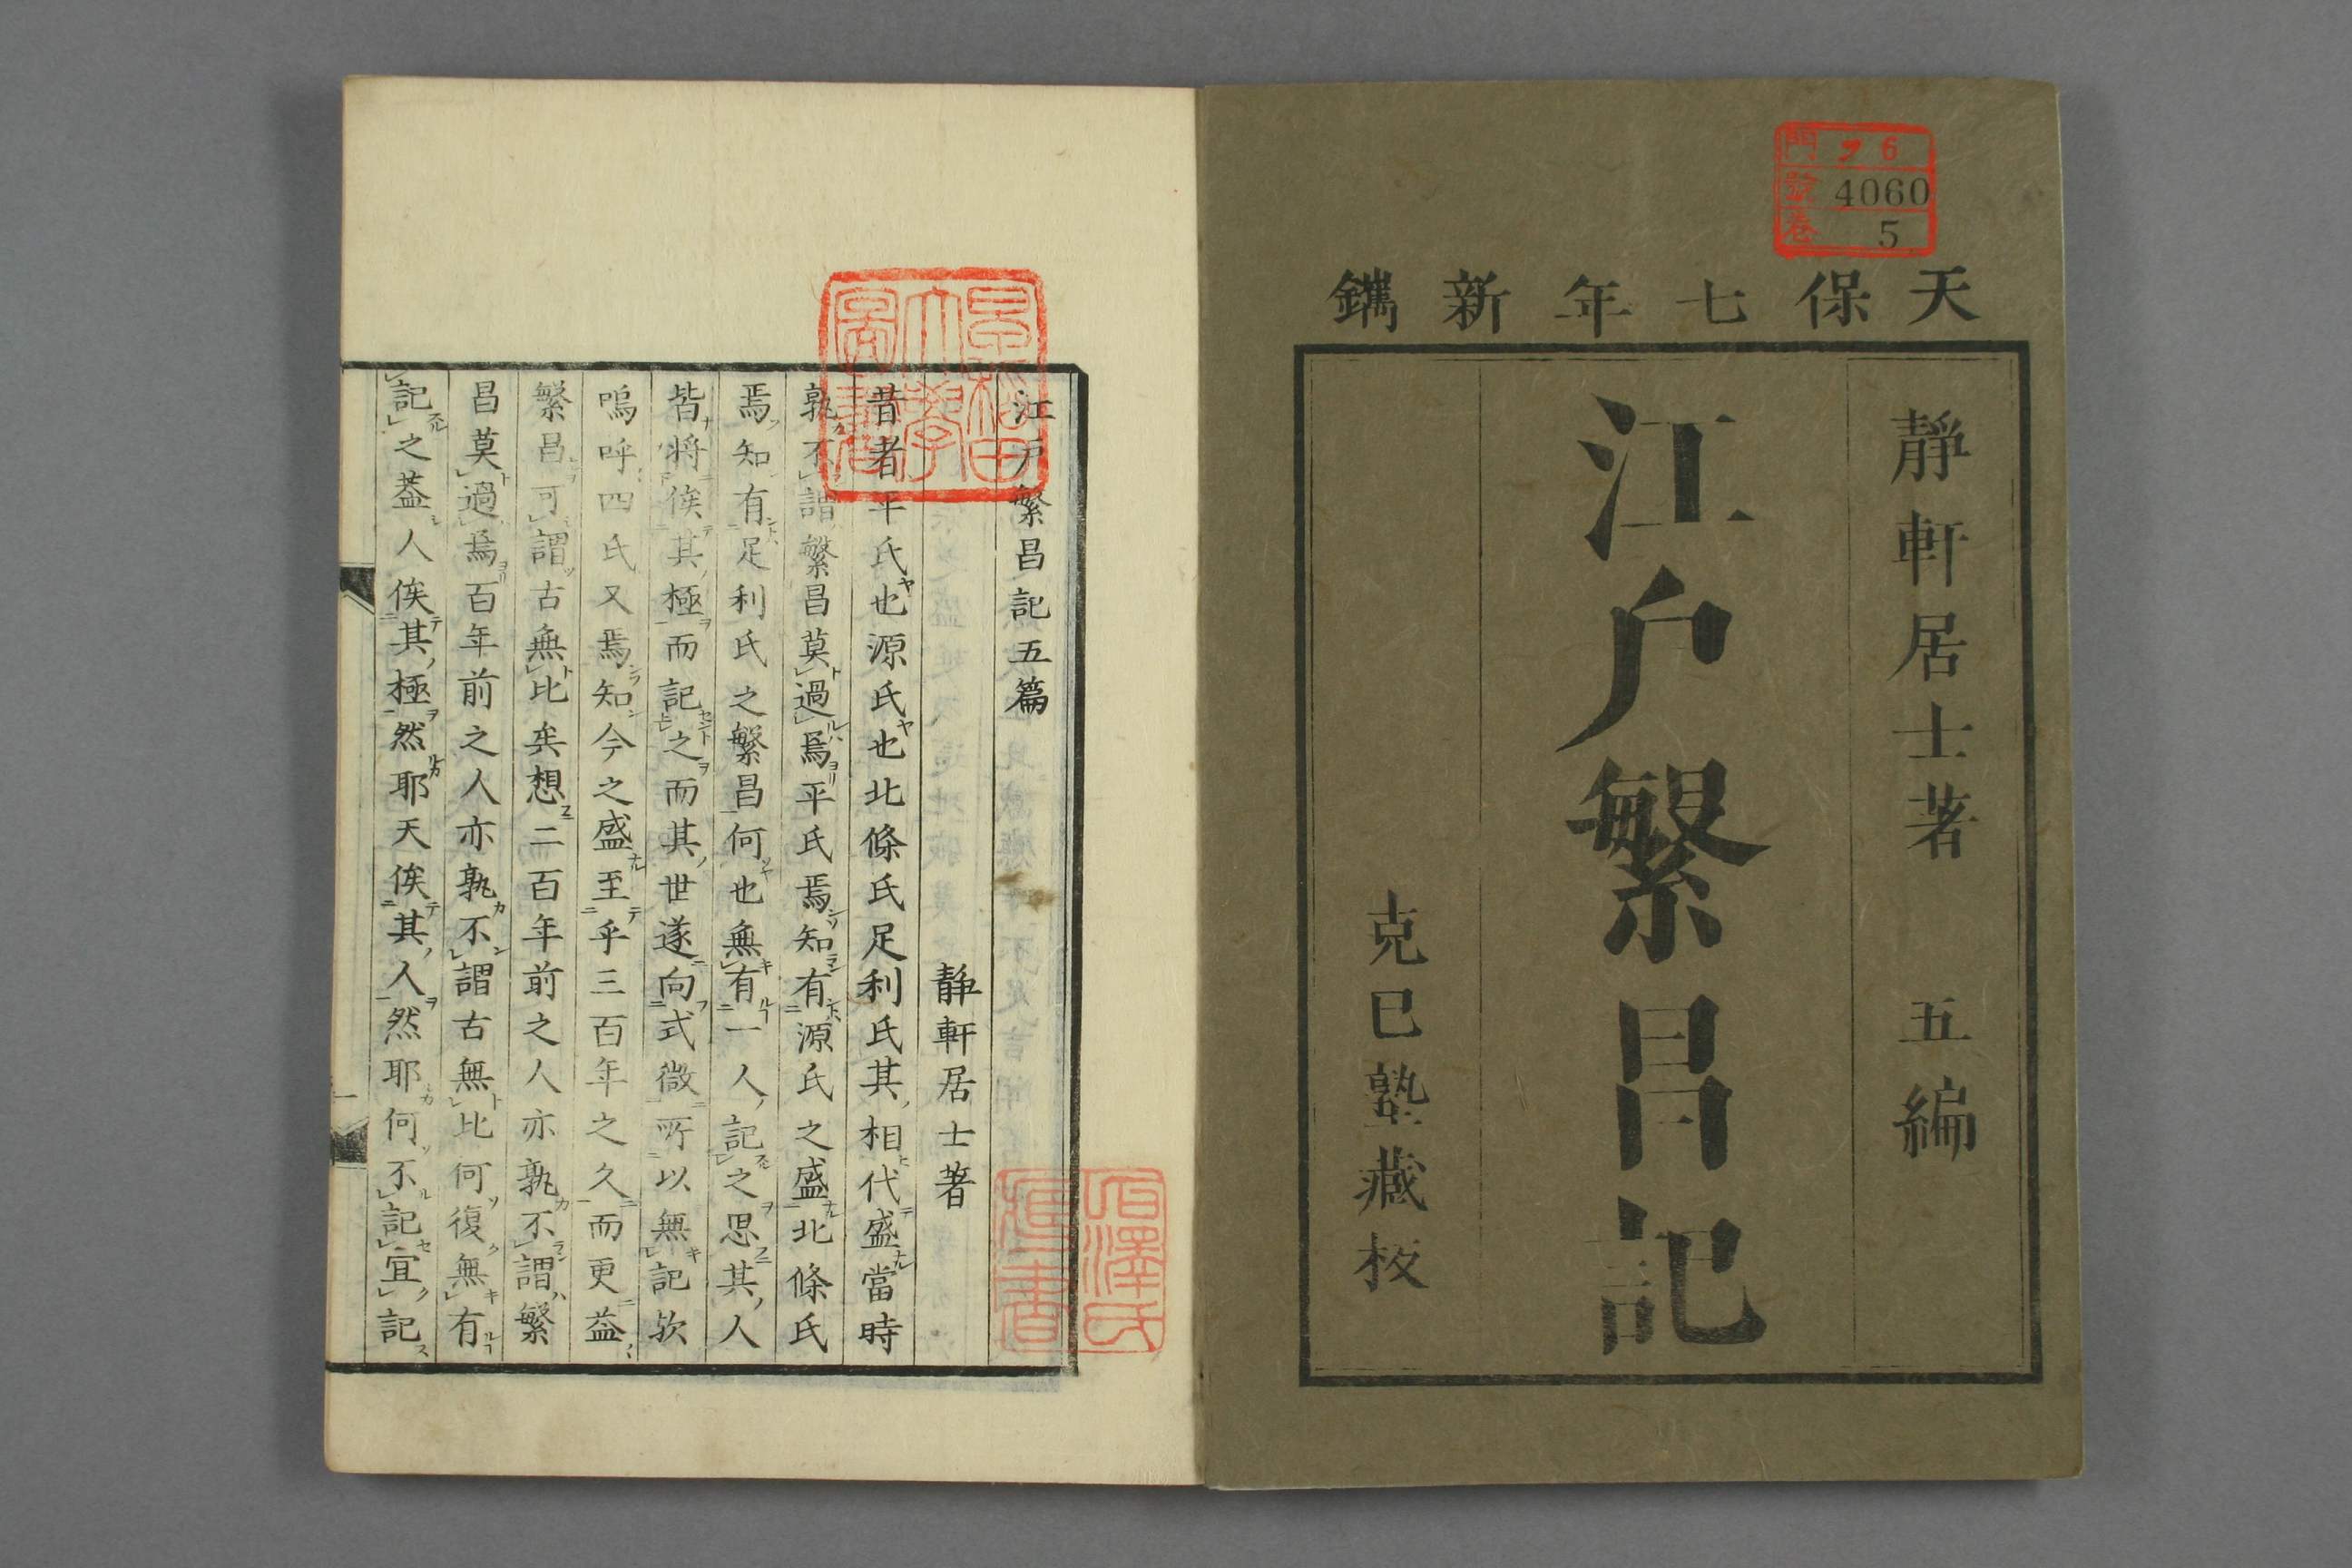 門 ヲ 6
號 4060
卷 5
天保七年新鐫
靜軒居士著 五編
江戶繁昌記
克己塾藏板
江戶繁昌記五篇
靜軒居士著
昔者平氏也源氏也北條氏足利氏其相代盛當時
孰不謂繁昌莫過焉平氏焉知有源氏之盛北條氏
焉知有足利氏之繁昌何也無有一人記之思其人
皆將俟其極而記之而其世遂向式微所以無記歟
嗚呼四氏又焉知今之盛至乎三百年之久而更益
繁昌可謂古無比矣想二百年前之人亦孰不謂繁
昌莫過焉百年前之人亦孰不謂古無比何復無有
記之蓋人俟其極然耶天俟其人然耶何不記宜記
一
早稻田大學圖書